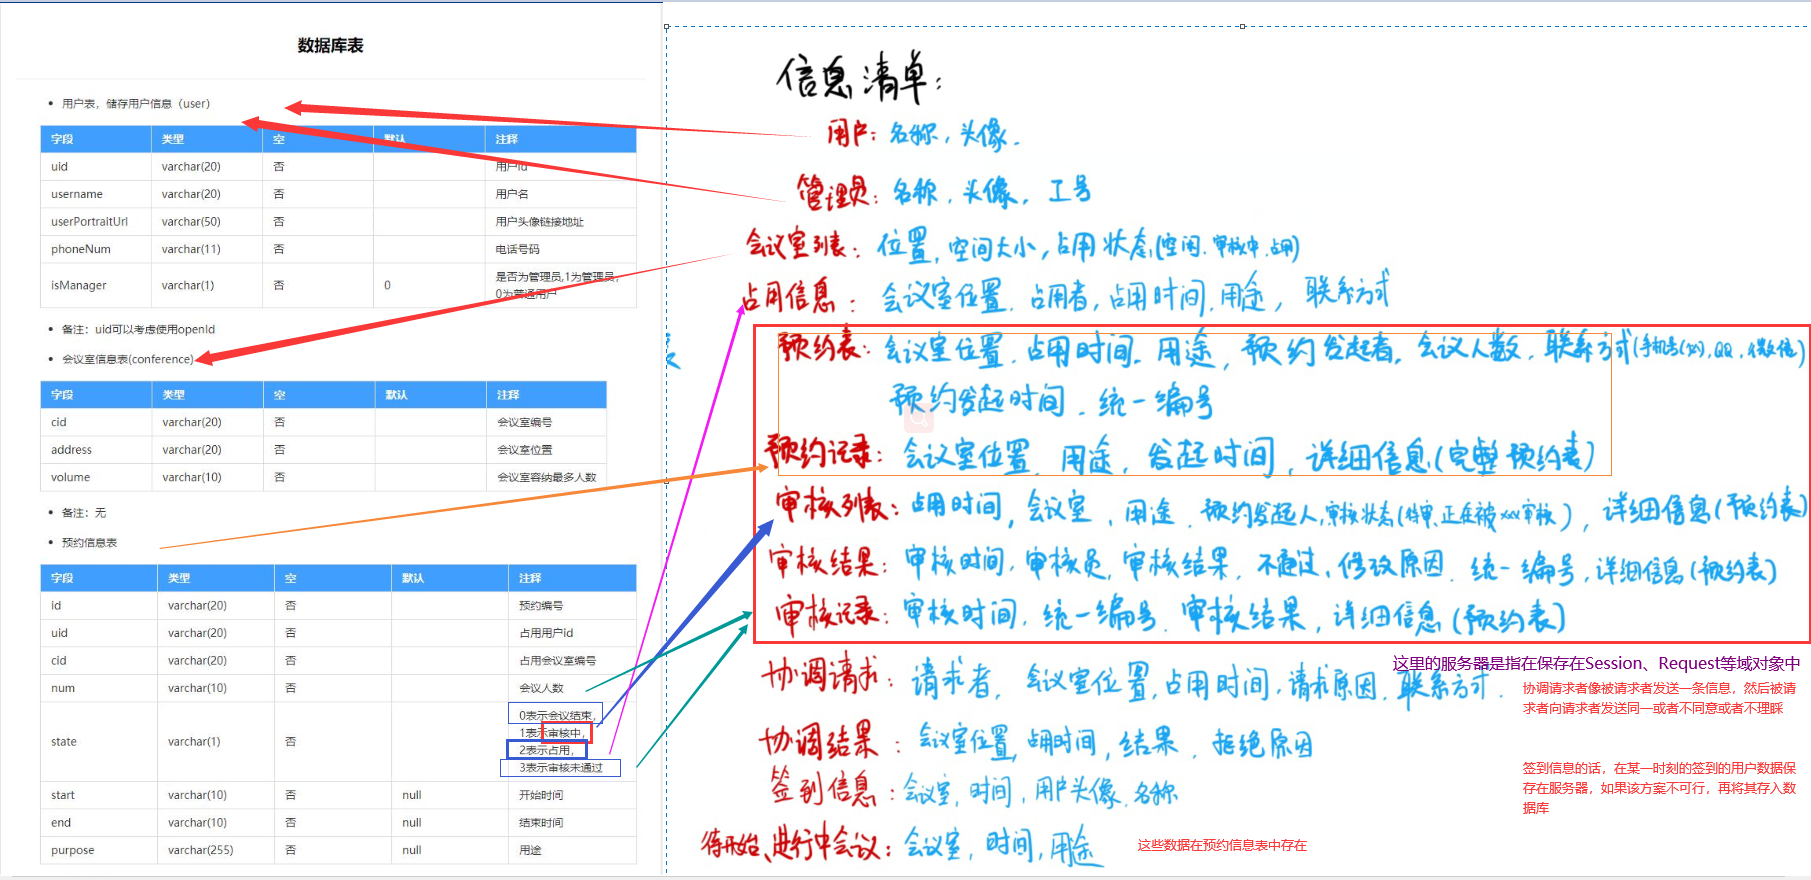 数据库表
用户表，储存用户信息（user)
字段 类型 空 默认 注释
uid varchar(20) 否 用户id
username varchar(20) 否 用户名
userPortraitUrl varchar(50) 否 用户头像链接地址
phoneNum varchar(11) 否 电话号码
isManager varchar(1) 否 0 是否为管理员,1为管理员，
0为普通用户
备注：uid可以考虑使用openId
会议室信息表(conference)
字段 类型 空 默认 注释
cid varchar(20) 否 会议室编号
address varchar(20) 否 会议室位置
volume varchar(10) 否 会议室容纳最多人数
备注：无
预约信息表
字段 类型 空 默认 注释
id varchar(20) 否 预约编号
uid varchar(20) 否 占用用户id
cid varchar(20) 否 占用会议室编号
num varchar(10) 否 会议人数
state varchar(1) 否 0表示会议结束，
1表示审核中，
2表示占用，
3表示审核未通过
start varchar(10) 否 null 开始时间
end varchar(10) 否 null 结束时间
purpose varchar(255) 否 null 用途
信息清单：
用户：名称，头像．
管理员：名称，头像，工号
会议室列表：位置，空间大小，占用状态(空闲．审核中．占用)
占用信息：会议室位置．占用者，占用时间．用途，联系方式
预约表：会议室位置．占用时间．用途，预约发起者．会议人数．联系方式(手机号，QQ，微信)
预约发起时间．统一编号
预约记录：会议室位置．用途，发起时间，详细信息(完整预约表)
审核列表：占用时间，会议室，用途．预约发起人，审核状态(待审、正在被xxx审核)，详细信息(预约表)
审核结果：审核时间，审核员，审核结果．不通过、修改原因．统一编号，详细信息(预约表)
审核记录：审核时间，统一编号．审核结果，详细信息(预约表)
这里的服务器是指在保存在Session、Request等域对象中
协调请求：请求者，会议室位置，占用时间，请求原因．联系方式．
协调请求者像被请求者发送一条信息，然后被请
求者向请求者发送同一或者不同意或者不理睬
协调结果：会议室位置，占用时间，结果，拒绝原因
签到信息：会议室，时间，用户头像．名称
签到信息的话，在某一时刻的签到的用户数据保
存在服务器，如果该方案不可行，再将其存入数
据库
待开始、进行中会议：会议室，时间，用途
这些数据在预约信息表中存在